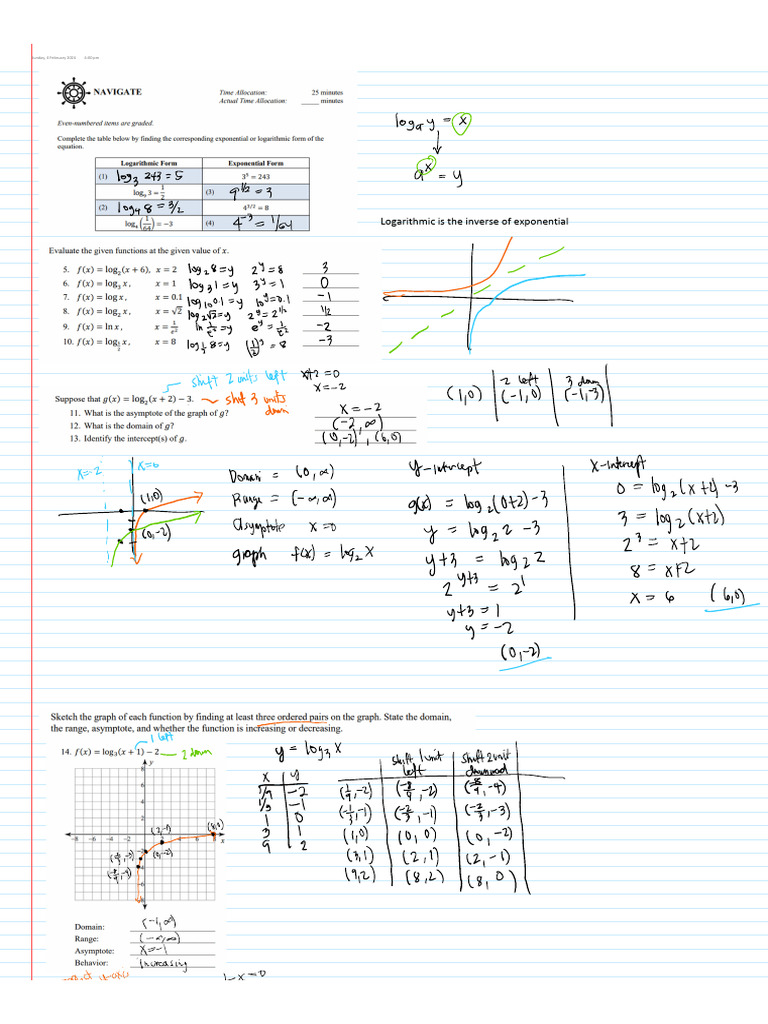 NAVIGATE
Time Allocation: 25 minutes
Actual Time Allocation: _____ minutes
Even-numbered items are graded.
Complete the table below by finding the corresponding exponential or logarithmic form of the
equation.
Logarithmic Form Exponential Form
(1) log₃ 243 = 5 3⁵ = 243
log₉ 3 = 1/2 (3) 9^(1/2) = 3
(2) log₄ 8 = 3/2 4^(3/2) = 8
log₄ (1/64) = −3 (4) 4^−3 = 1/64
logₐ y = x
aˣ = y
Logarithmic is the inverse of exponential
Evaluate the given functions at the given value of x.
5. f(x) = log₂(x + 6), x = 2 log₂ 8 = y 2^y = 8 3
6. f(x) = log₃ x, x = 1 log₃ 1 = y 3^y = 1 0
7. f(x) = log x, x = 0.1 log₁₀ 0.1 = y 10^y = 0.1 −1
8. f(x) = log₂ x, x = √2 log₂ √2 = y 2^y = 2^(1/2) 1/2
9. f(x) = ln x, x = 1/e² ln 1/e² = y e^y = 1/e² −2
10. f(x) = log_(1/2) x, x = 8 log_(1/2) 8 = y (1/2)^y = 8 −3
shift 2 units left
x+2 = 0
x = −2
Suppose that g(x) = log₂(x + 2) − 3.
shift 3 units
down
11. What is the asymptote of the graph of g? x = −2
12. What is the domain of g? (−2, ∞)
13. Identify the intercept(s) of g. (0,−2), (6,0)
2 left 3 down
(1,0) (−1,0) (−1,−3)
x=−2 x=0
(1,0)
(0,−2)
Domain = (0, ∞)
Range = (−∞, ∞)
Asymptote x=0
graph f(x) = log₂ x
y-intercept
g(x) = log₂(0+2)−3
y = log₂ 2 −3
y+3 = log₂ 2
2^(y+3) = 2¹
y+3 = 1
y = −2
(0,−2)
x-intercept
0 = log₂(x+2)−3
3 = log₂(x+2)
2³ = x+2
8 = x+2
x = 6 (6,0)
Sketch the graph of each function by finding at least three ordered pairs on the graph. State the domain,
the range, asymptote, and whether the function is increasing or decreasing.
1 left
14. f(x) = log₃(x + 1) − 2 2 down
y = log₃ x
x y
1/9 −2
1/3 −1
1 0
3 1
9 2
shift 1 unit left shift 2 unit downward
(1/9,−2) (−8/9,−2) (−8/9,−4)
(1/3,−1) (−2/3,−1) (−2/3,−3)
(1,0) (0,0) (0,−2)
(3,1) (2,1) (2,−1)
(9,2) (8,2) (8,0)
y
8
2
−8 −6 −4 −2 4 6 8 x
(8,0)
(2,−1)
(0,−2)
(−2/3,−3)
(−8/9,−4)
Domain: (−1,∞)
Range: (−∞,∞)
Asymptote: x=−1
Behavior: Increasing